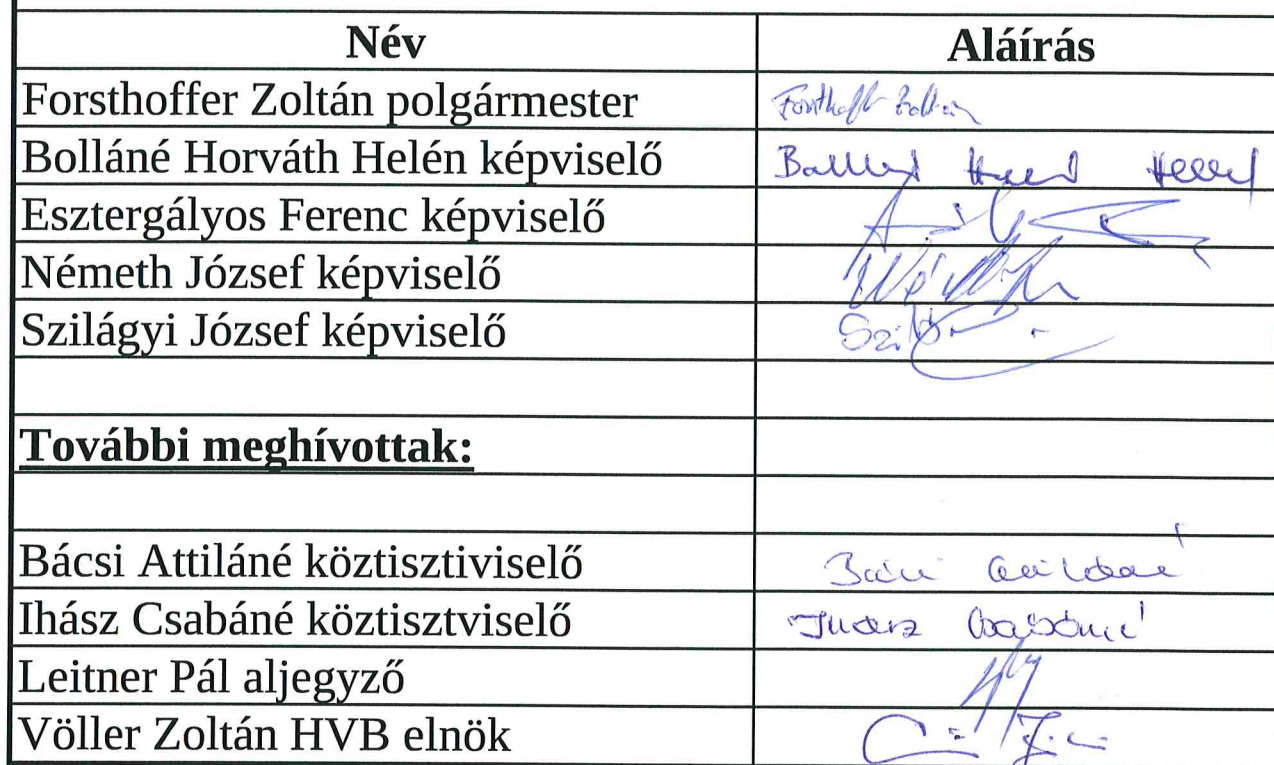 Név Aláírás
Forsthoffer Zoltán polgármester Forsthoffer Zoltán
Bolláné Horváth Helén képviselő
Esztergályos Ferenc képviselő
Németh József képviselő
Szilágyi József képviselő
További meghívottak:
Bácsi Attiláné köztisztiviselő
Ihász Csabáné köztisztviselő Ihász Csabáné
Leitner Pál aljegyző
Völler Zoltán HVB elnök